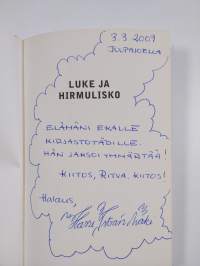 3.3 2009
JULPAJOELLA
LUKE JA
HIRMULISKO
ELÄMÄNI EKALLE
KIRJASTOTÄDILLE.
HÄN JAKSOI YMMÄRTÄÄ!
KIITOS, RITVA, KIITOS!
Halaus,